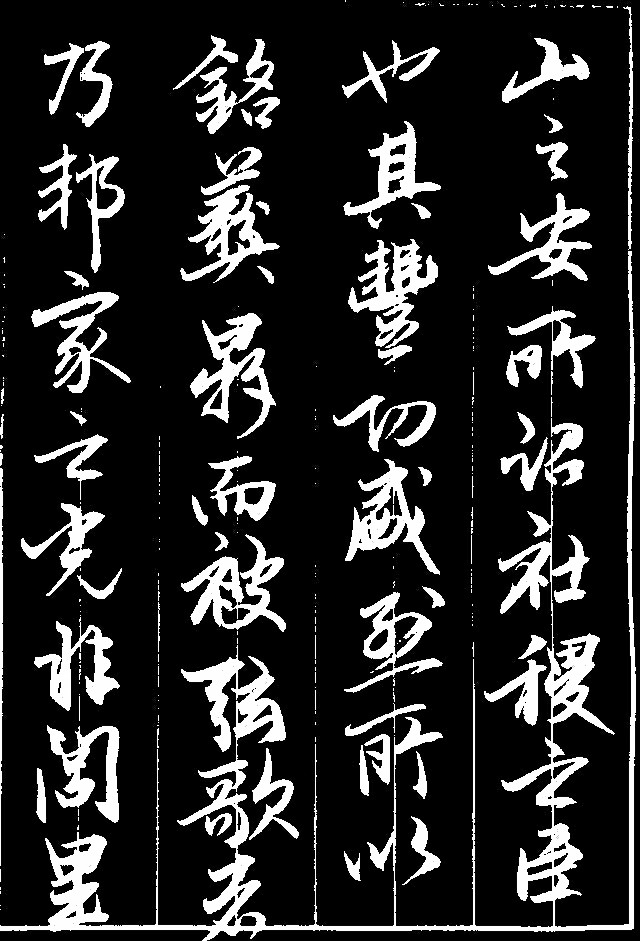 山之安所詔社稷之臣
也其豐功盛烈所以
銘彝鼎而被弦歌者
乃邦家之光非閭里